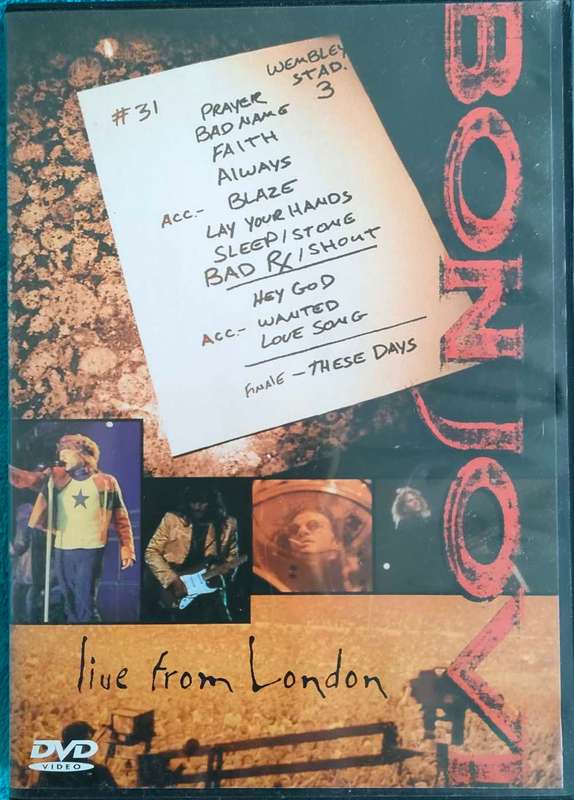 WEMBLEY
STAD.
3
#31
PRAYER
BAD NAME
FAITH
ALWAYS
ACC.- BLAZE
LAY YOUR HANDS
SLEEP/STONE
BAD RX/SHOUT
HEY GOD
ACC.- WANTED
LOVE SONG
FINALE - THESE DAYS
BON JOVI
live from London
DVD
VIDEO